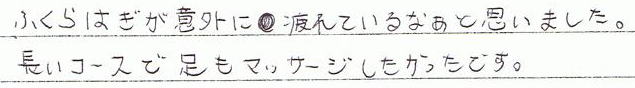 ふくらはぎが意外に疲れているなぁと思いました。
長いコースで足もマッサージしたかったです。